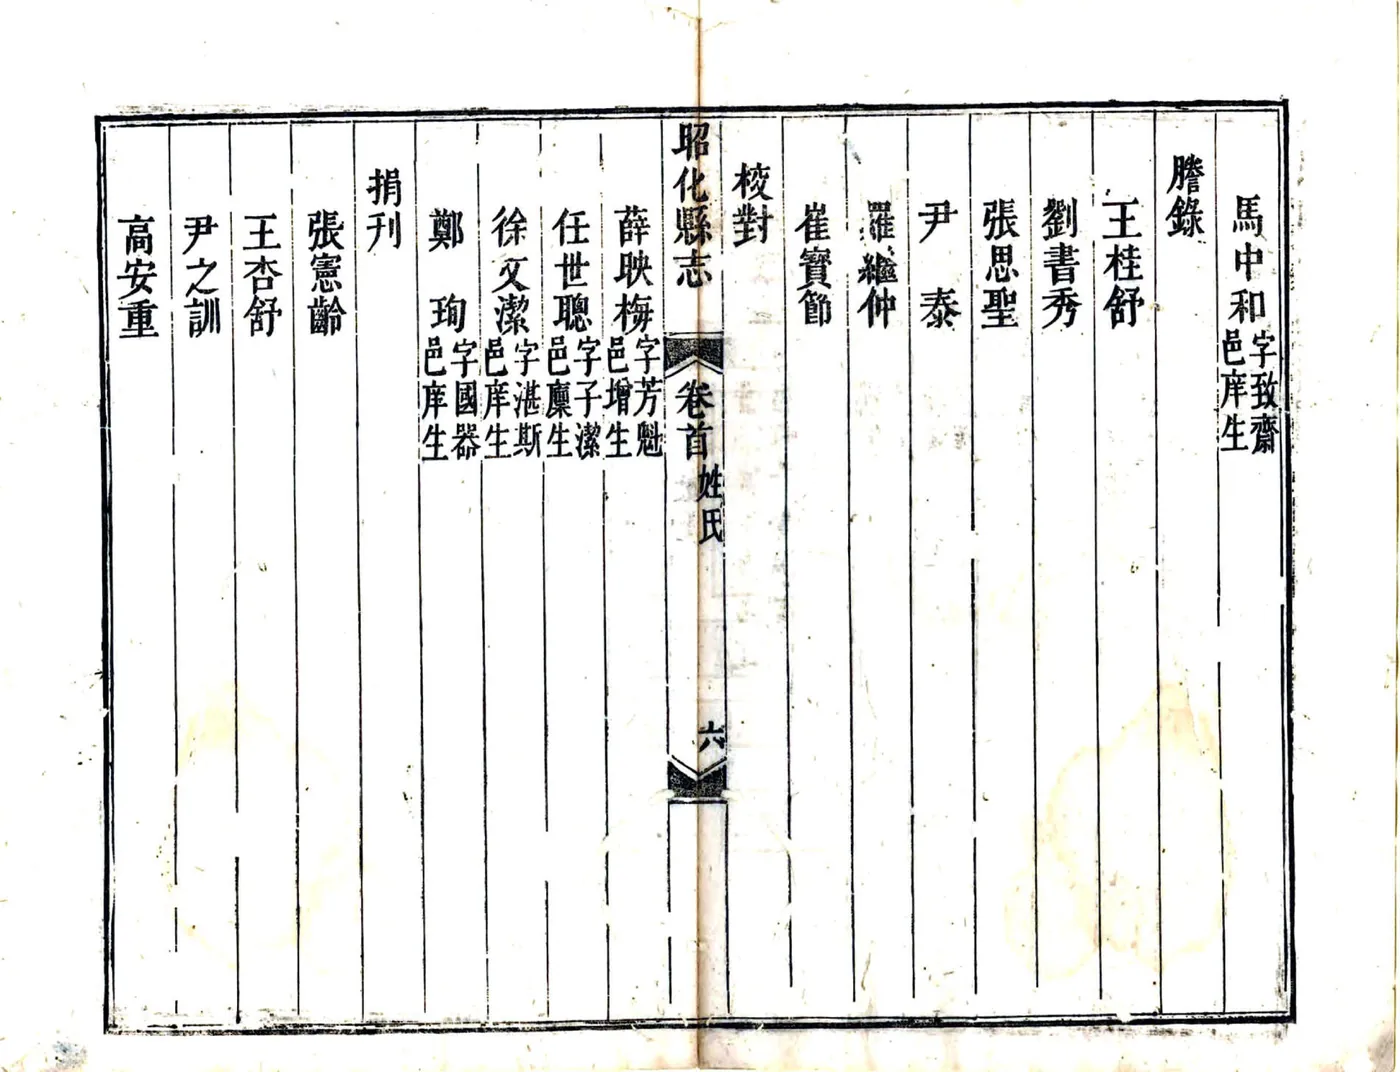 馬中和字致齋邑庠生
謄錄
王桂舒
劉書秀
張思聖
尹泰
羅繼仲
崔寶節
校對
昭化縣志 卷首 姓氏 六
薛映梅字芳魁邑增生
任世聰字子潔邑廩生
徐文潔字湛斯邑庠生
鄭珣字國器邑庠生
捐刋
張憲齡
王杏舒
尹之訓
高安重